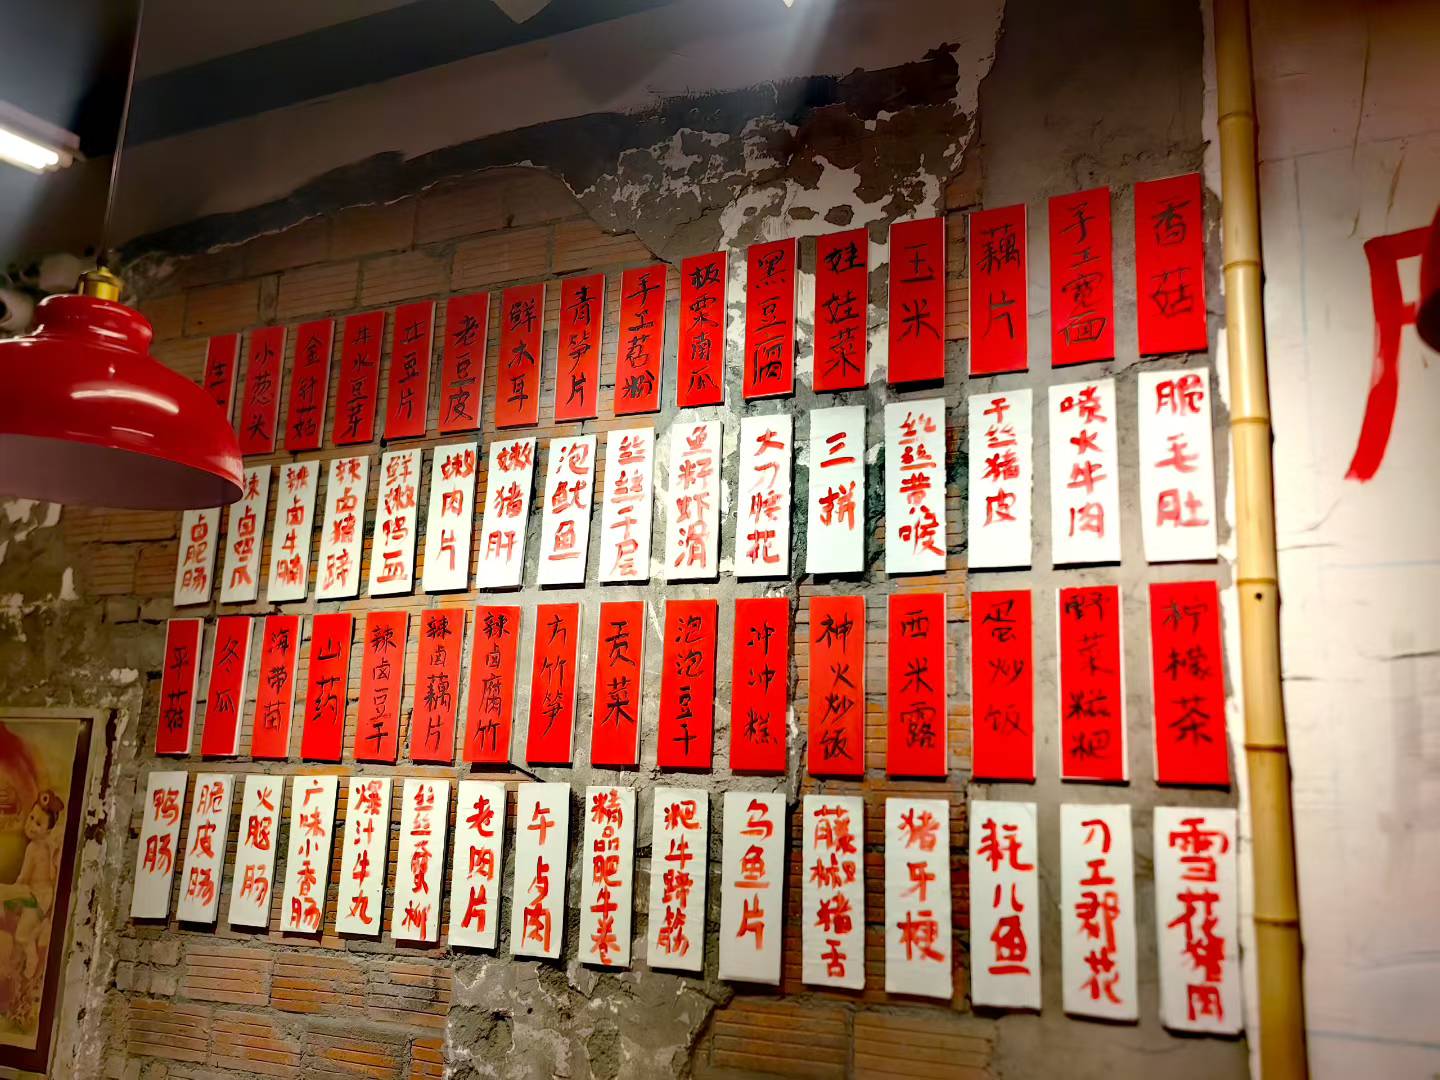 小葱头
金针菇
井水豆芽
土豆片
老豆皮
鲜木耳
青笋片
手工苕粉
板栗南瓜
黑豆腐
娃娃菜
玉米
藕片
手工宽面
香菇
卤肥肠
辣卤鸡爪
辣卤牛腩
辣卤猪蹄
鲜嫩鸭血
嫩肉片
嫩猪肝
泡鱿鱼
丝丝千层
鱼籽虾滑
大刀腰花
三拼
丝丝黄喉
干丝猪皮
喷火牛肉
脆毛肚
平菇
冬瓜
海带苗
山药
辣卤豆干
辣卤藕片
辣卤腐竹
方竹笋
贡菜
泡泡豆干
冲冲糕
神火炒饭
西米露
蛋炒饭
野菜糍粑
柠檬茶
鸭肠
脆皮肠
火腿肠
广味小香肠
爆汁牛丸
丝丝蟹柳
老肉片
午与肉
精品肥牛卷
粑牛蹄筋
乌鱼片
藤椒猪舌
猪牙梗
耗儿鱼
刀工郡花
雪花猪肉